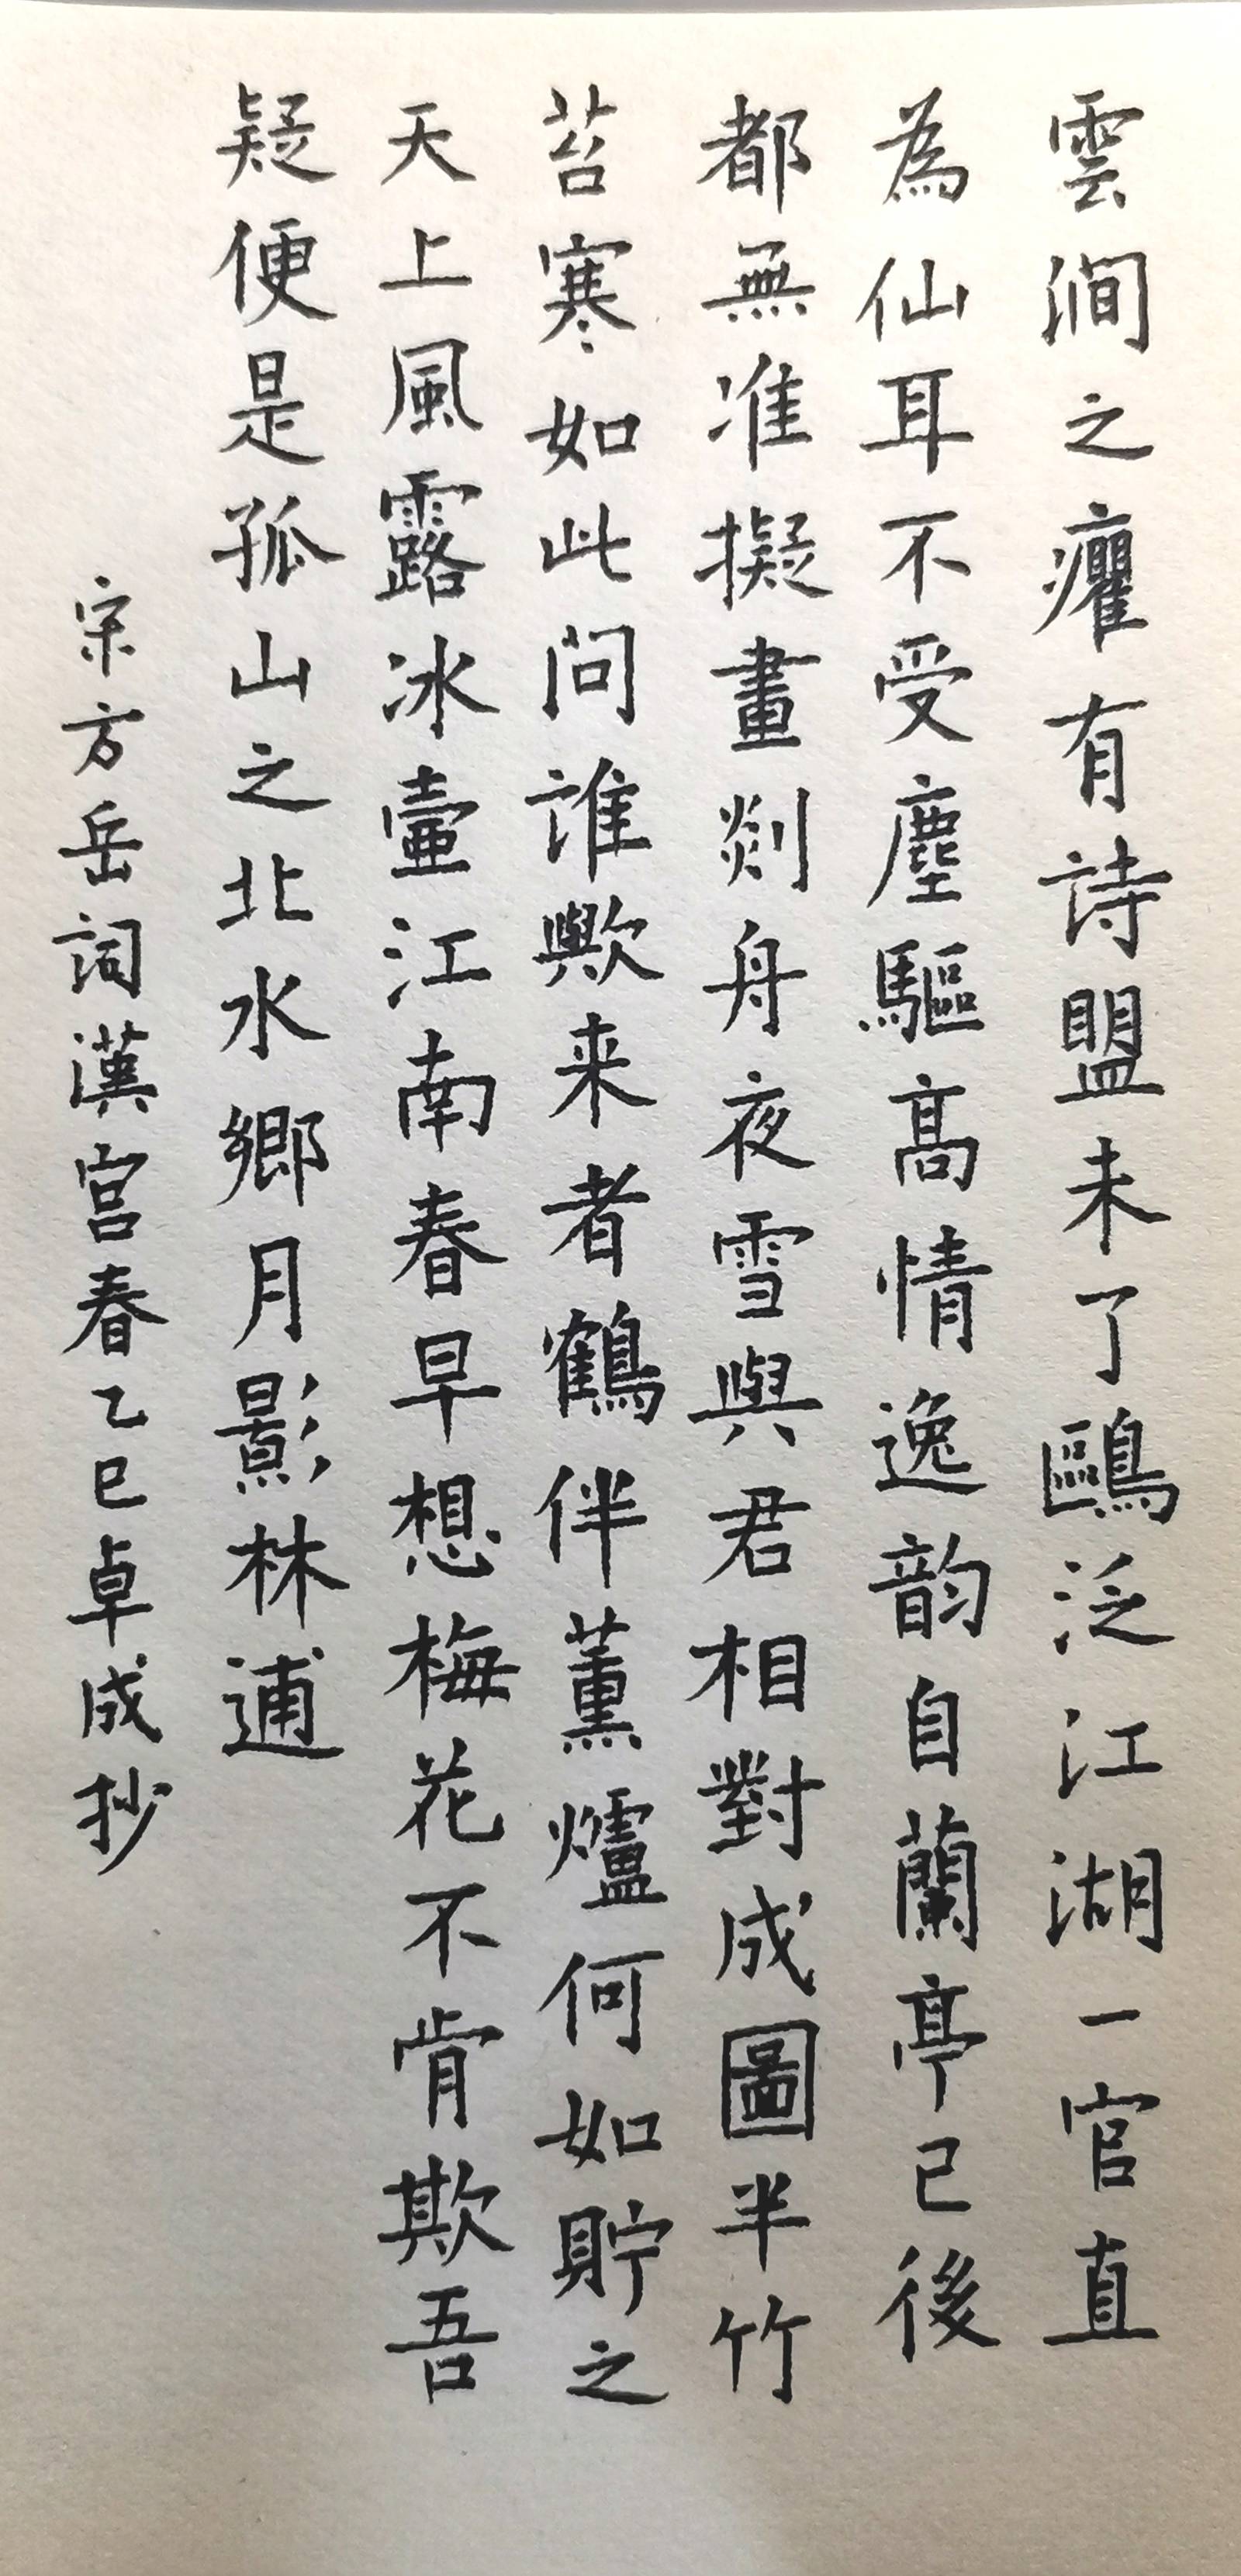 雲澗之癯有詩盟未了鷗泛江湖一官直
為仙耳不受塵驅高情逸韵自蘭亭已後
都無准擬畫剡舟夜雪與君相對成圖半竹
苔寒如此问誰歟来者鶴伴薰爐何如貯之
天上風露冰壷江南春早想梅花不肯欺吾
疑便是孤山之北水鄉月影林逋
宋方岳詞漢宮春乙巳卓成抄